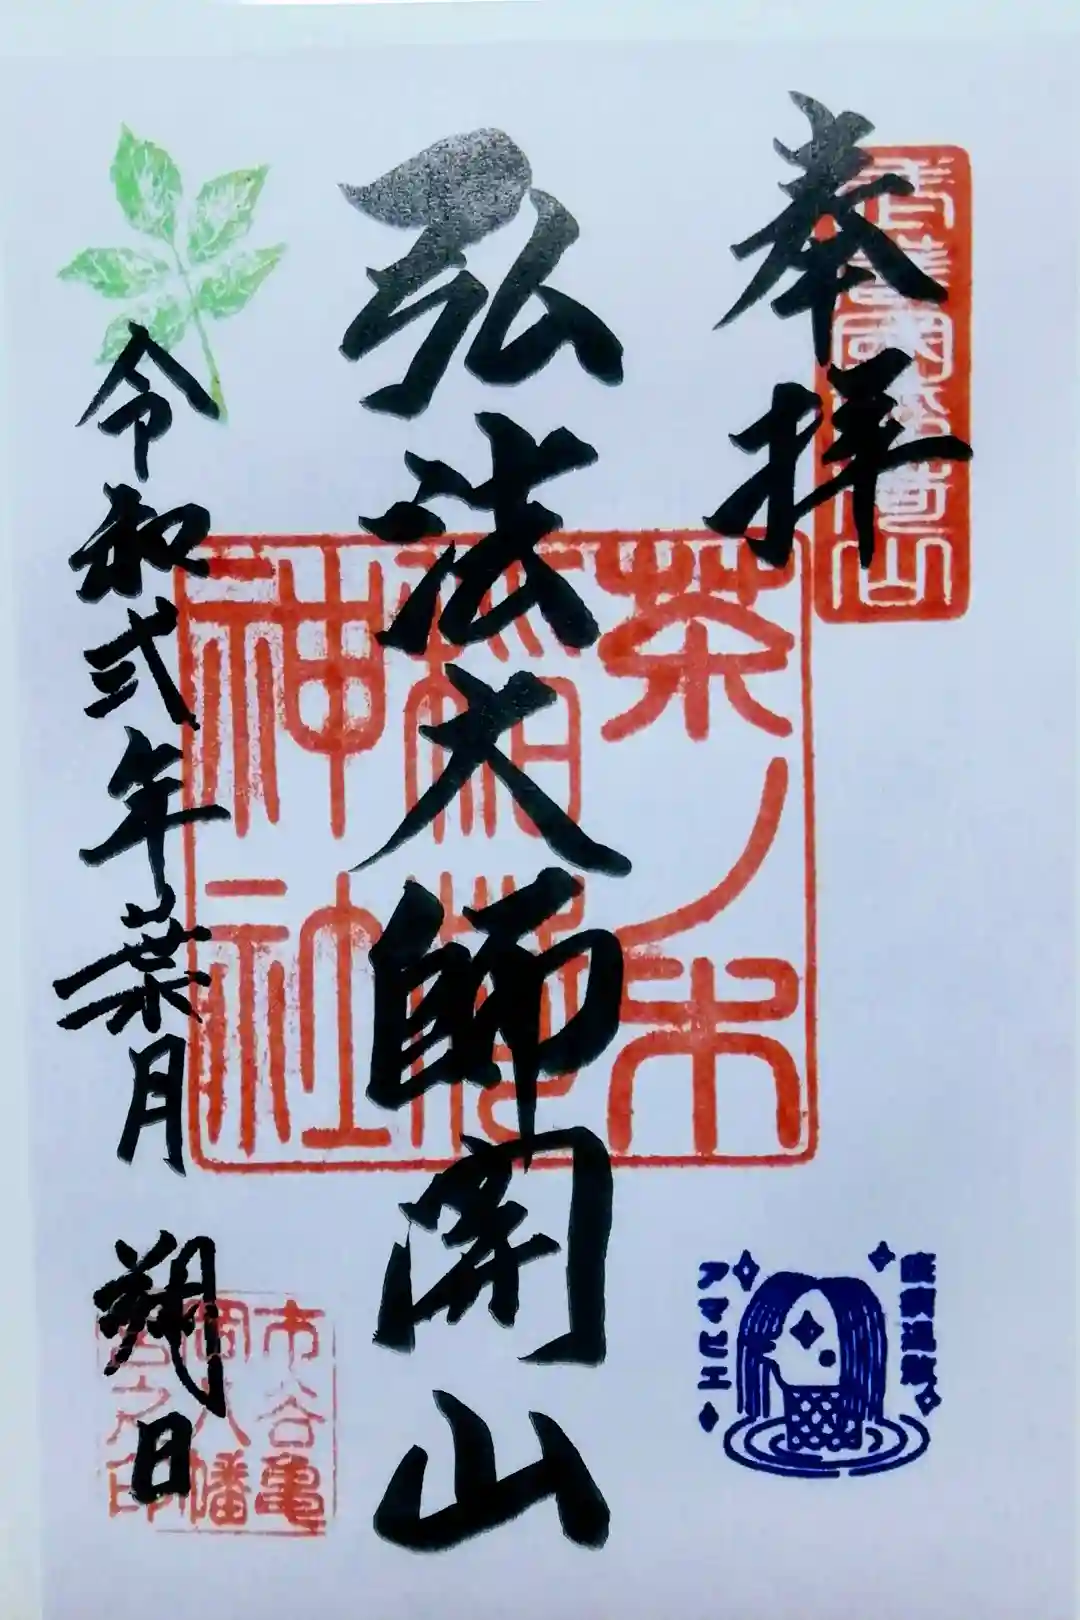 奉拝
弘法大師開山
茶ノ木
稲荷
神社
令和弐年葉月
朔日
市谷亀
岡八幡
宮之印
疫病退散
アマビエ